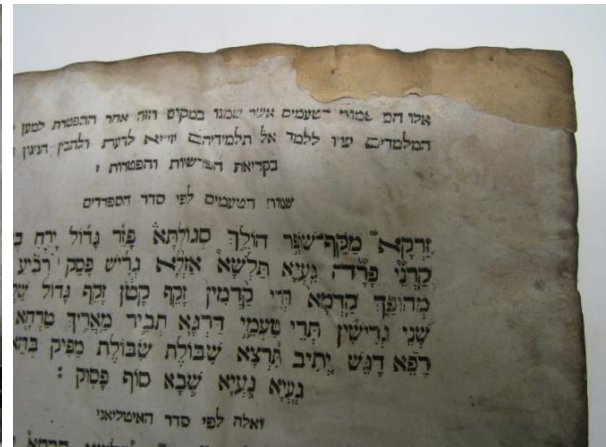 אלו הם שמות הטעמים אשר שמנו במקום הזה אחר ההפטרות למען
המלמדים ללמד אל תלמידיהם לדעת ולהבין הניגון
בקריאת הפרשיות והפטרות :
שמות הטעמים לפי סדר הספרדים
זַרְקָא מַקַּף־שׁוֹפָר הוֹלֵךְ סְגוֹלְתָּא פָּזֵר גָּדוֹל יָרֵחַ
קַרְנֵי פָרָה גַּעְיָא תַּלְשָׁא אַזְלָא גְּרִישׁ פָּסֵק רְבִיעַ
מְהוּפָּךְ קַדְמָא תְּרֵי קַדְמִין זָקֵף קָטֹן זָקֵף גָּדוֹל
שְׁנֵי גְרִישִׁין תְּרֵי טַעֲמֵי דַּרְגָּא תְּבִיר מַאֲרִיךְ טַרְחָא
רָפֵא דָגֵשׁ יְתִיב תִּרְצָא שִׁבּוֹלֶת שִׂבּוֹלֶת מַפִּיק
גַּעְיָא נָעְיָא שְׁבָא סוֹף פָּסוּק :
ואלה לפי סדר האיטליאני